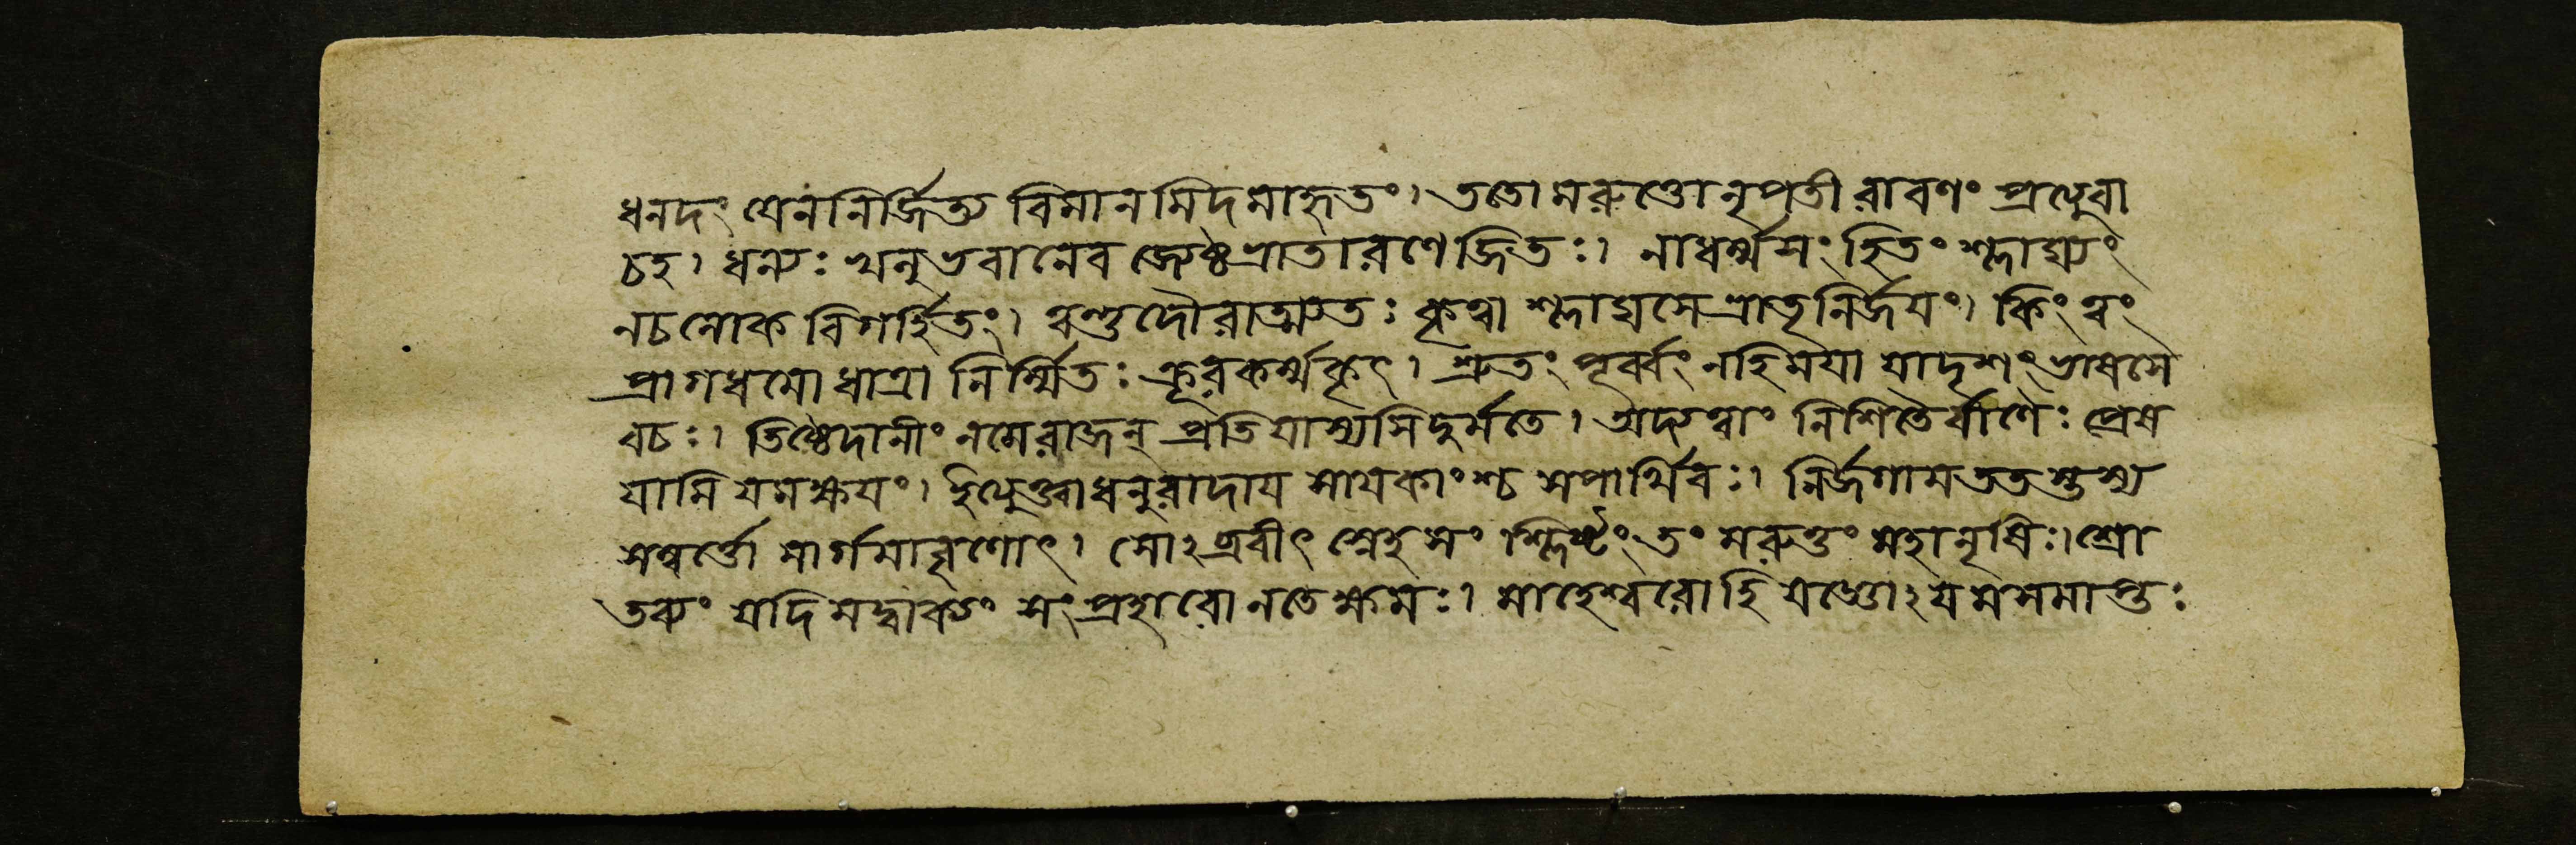 ধনদং যেন নির্জিত্য বিমানমিদমাহৃতং। ততো মরুত্তো নৃপতী রাবণং প্রত্যুবা
চহ। ধন্যঃ খলু ভবানেব জ্যেষ্ঠভ্রাতা রণে জিতঃ। নাধর্ম্মসংহিতং শ্লাঘ্যং
নচ লোক বিগর্হিতং। যস্তু দৌরাত্ম্যতঃ কৃত্বা শ্লাঘসে ভ্রাতৃনির্জয়ং। কিং ত্বং
প্রাগধমো ধাত্রা নির্ম্মিতঃ ক্রূরকর্ম্মকৃৎ। শ্রুতং পূর্ব্বং নহি ময়া যাদৃশং ভাষসে
বচঃ। তিষ্ঠেদানীং নমে রাজন্ প্রতিযাস্যসি দুর্মতে। অদ্য ত্বাং নিশিতৈর্বাণৈঃ প্রেষ
যামি যমক্ষয়ং। ইত্যুক্ত্বা ধনুরাদায় সায়কাংশ্চ সপার্থিবঃ। নির্জগাম ততস্তস্য
সম্বর্ত্তো মার্গমাবৃণোৎ। সোঽব্রবীৎ স্নেহসংশ্লিষ্টং তং মরুত্তং মহানৃষিঃ। শ্রো
তব্যং যদি মদ্বাক্যং সংপ্রহারো নতে ক্ষমঃ। মাহেশ্বরো হি যজ্ঞোঽয়মসমাপ্তঃ